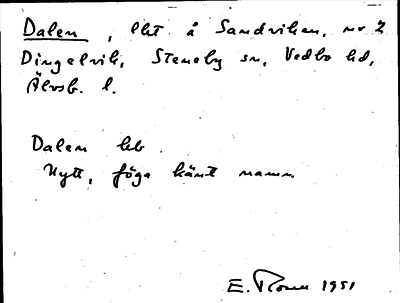 Dalen, lht å Sandviken, nr 2
Dingelvik, Steneby sn, Vedbo hd,
Älvsb. l.
Dalen lht
Nytt, föga känt namn.
E. 1951